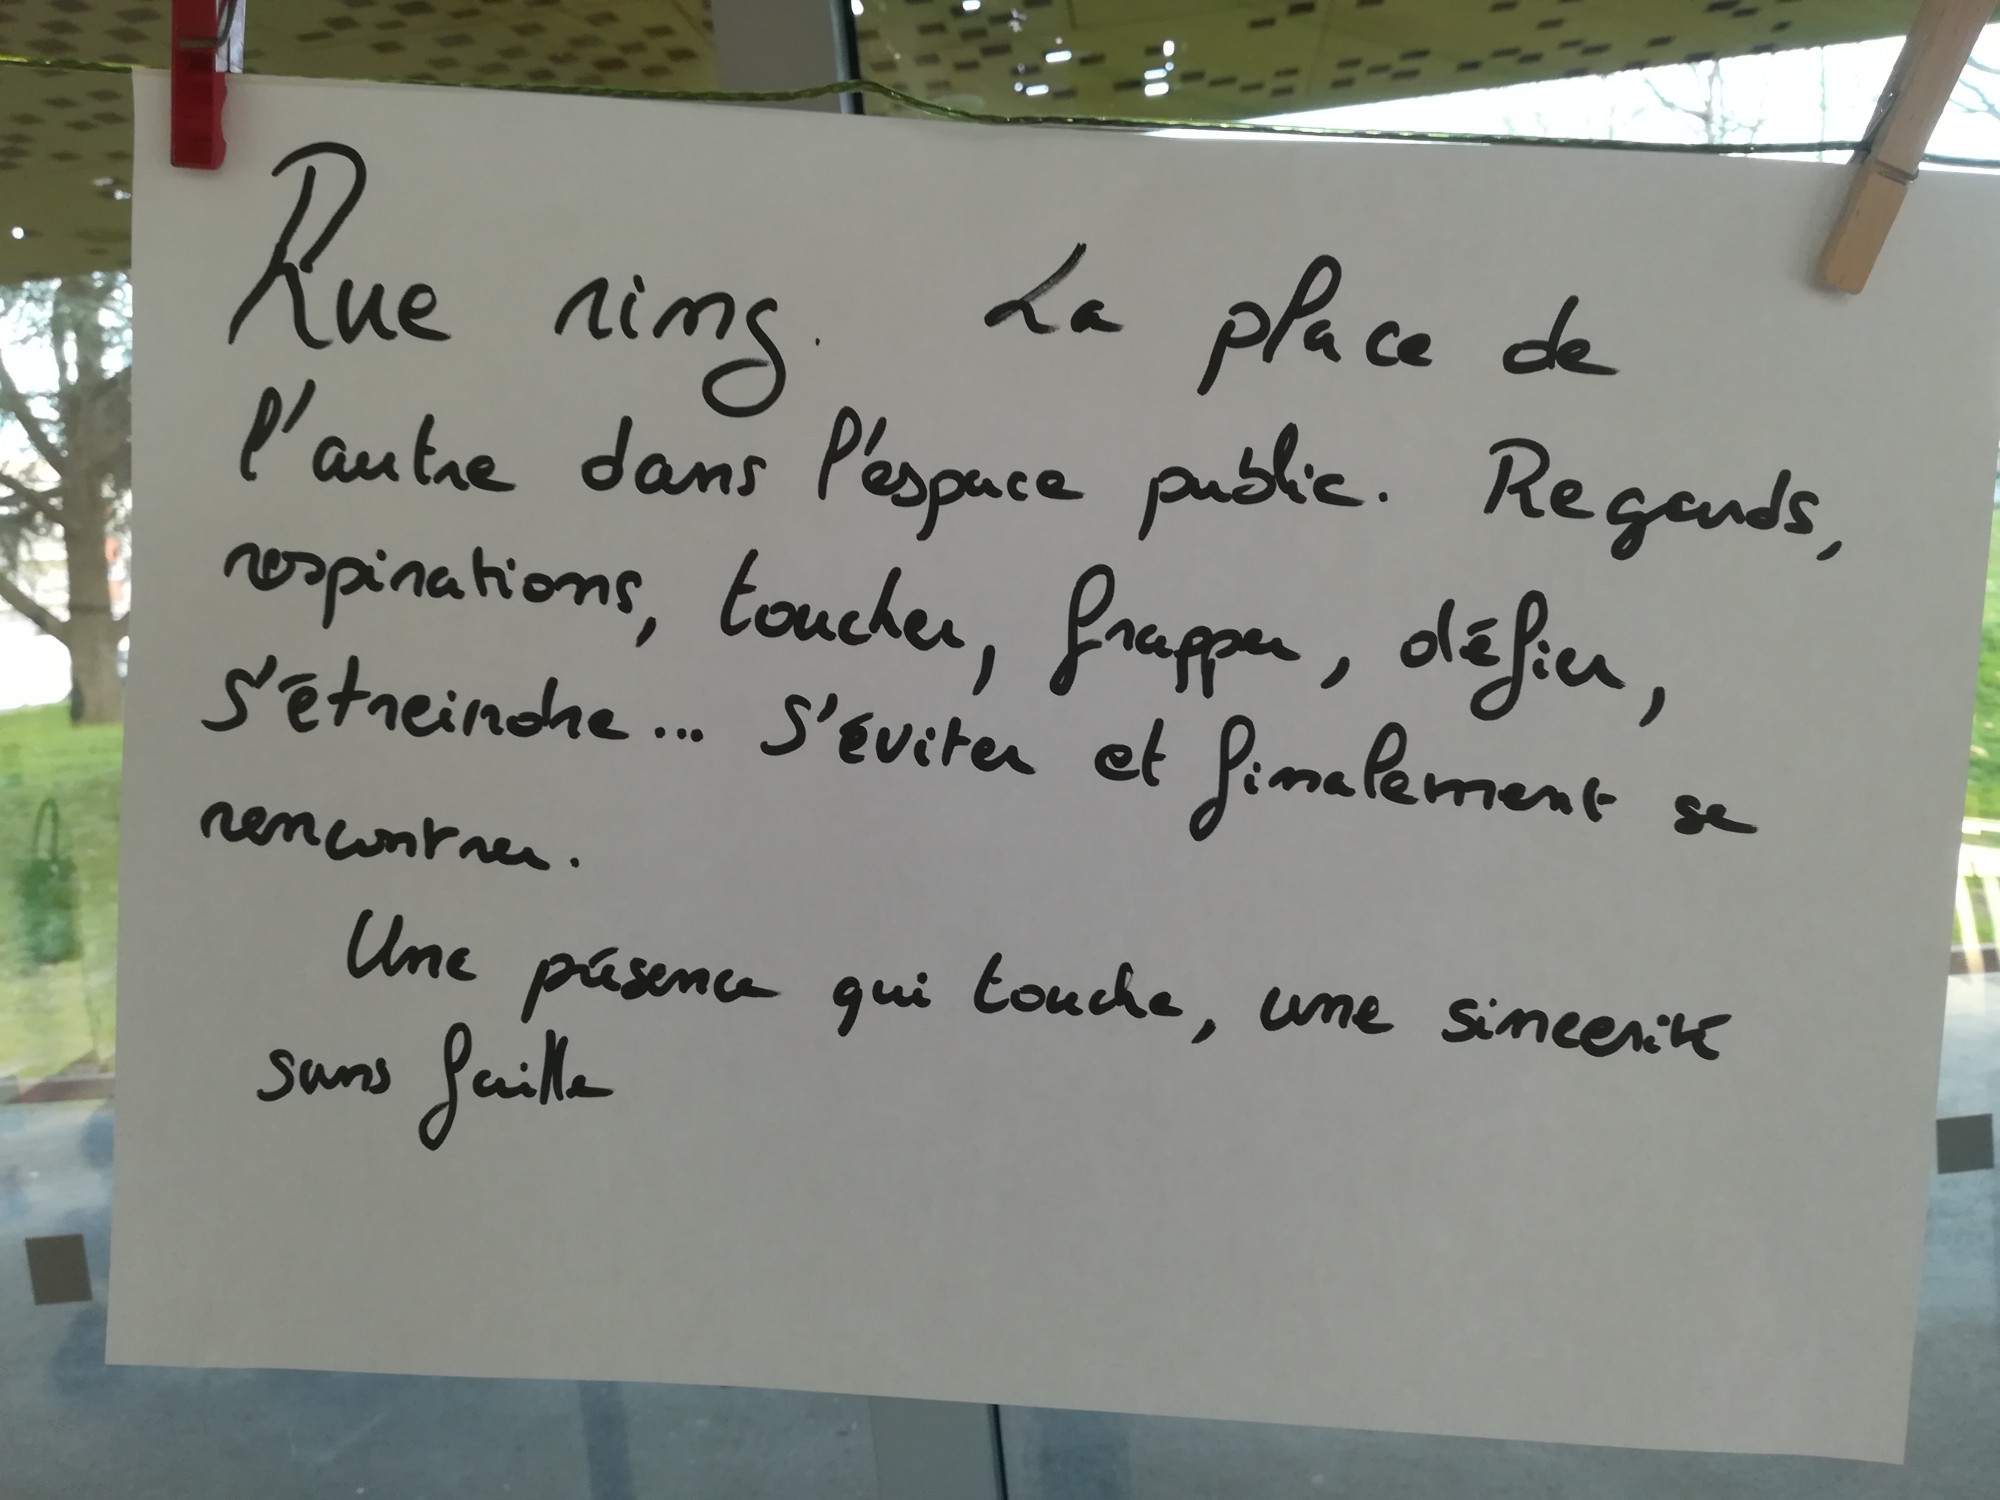 Rue ring. La place de
l'autre dans l'espace public. Regards,
respirations, toucher, frapper, défier,
s'étreindre... S'éviter et finalement se
rencontrer.
Une présence qui touche, une sincérité
sans faille